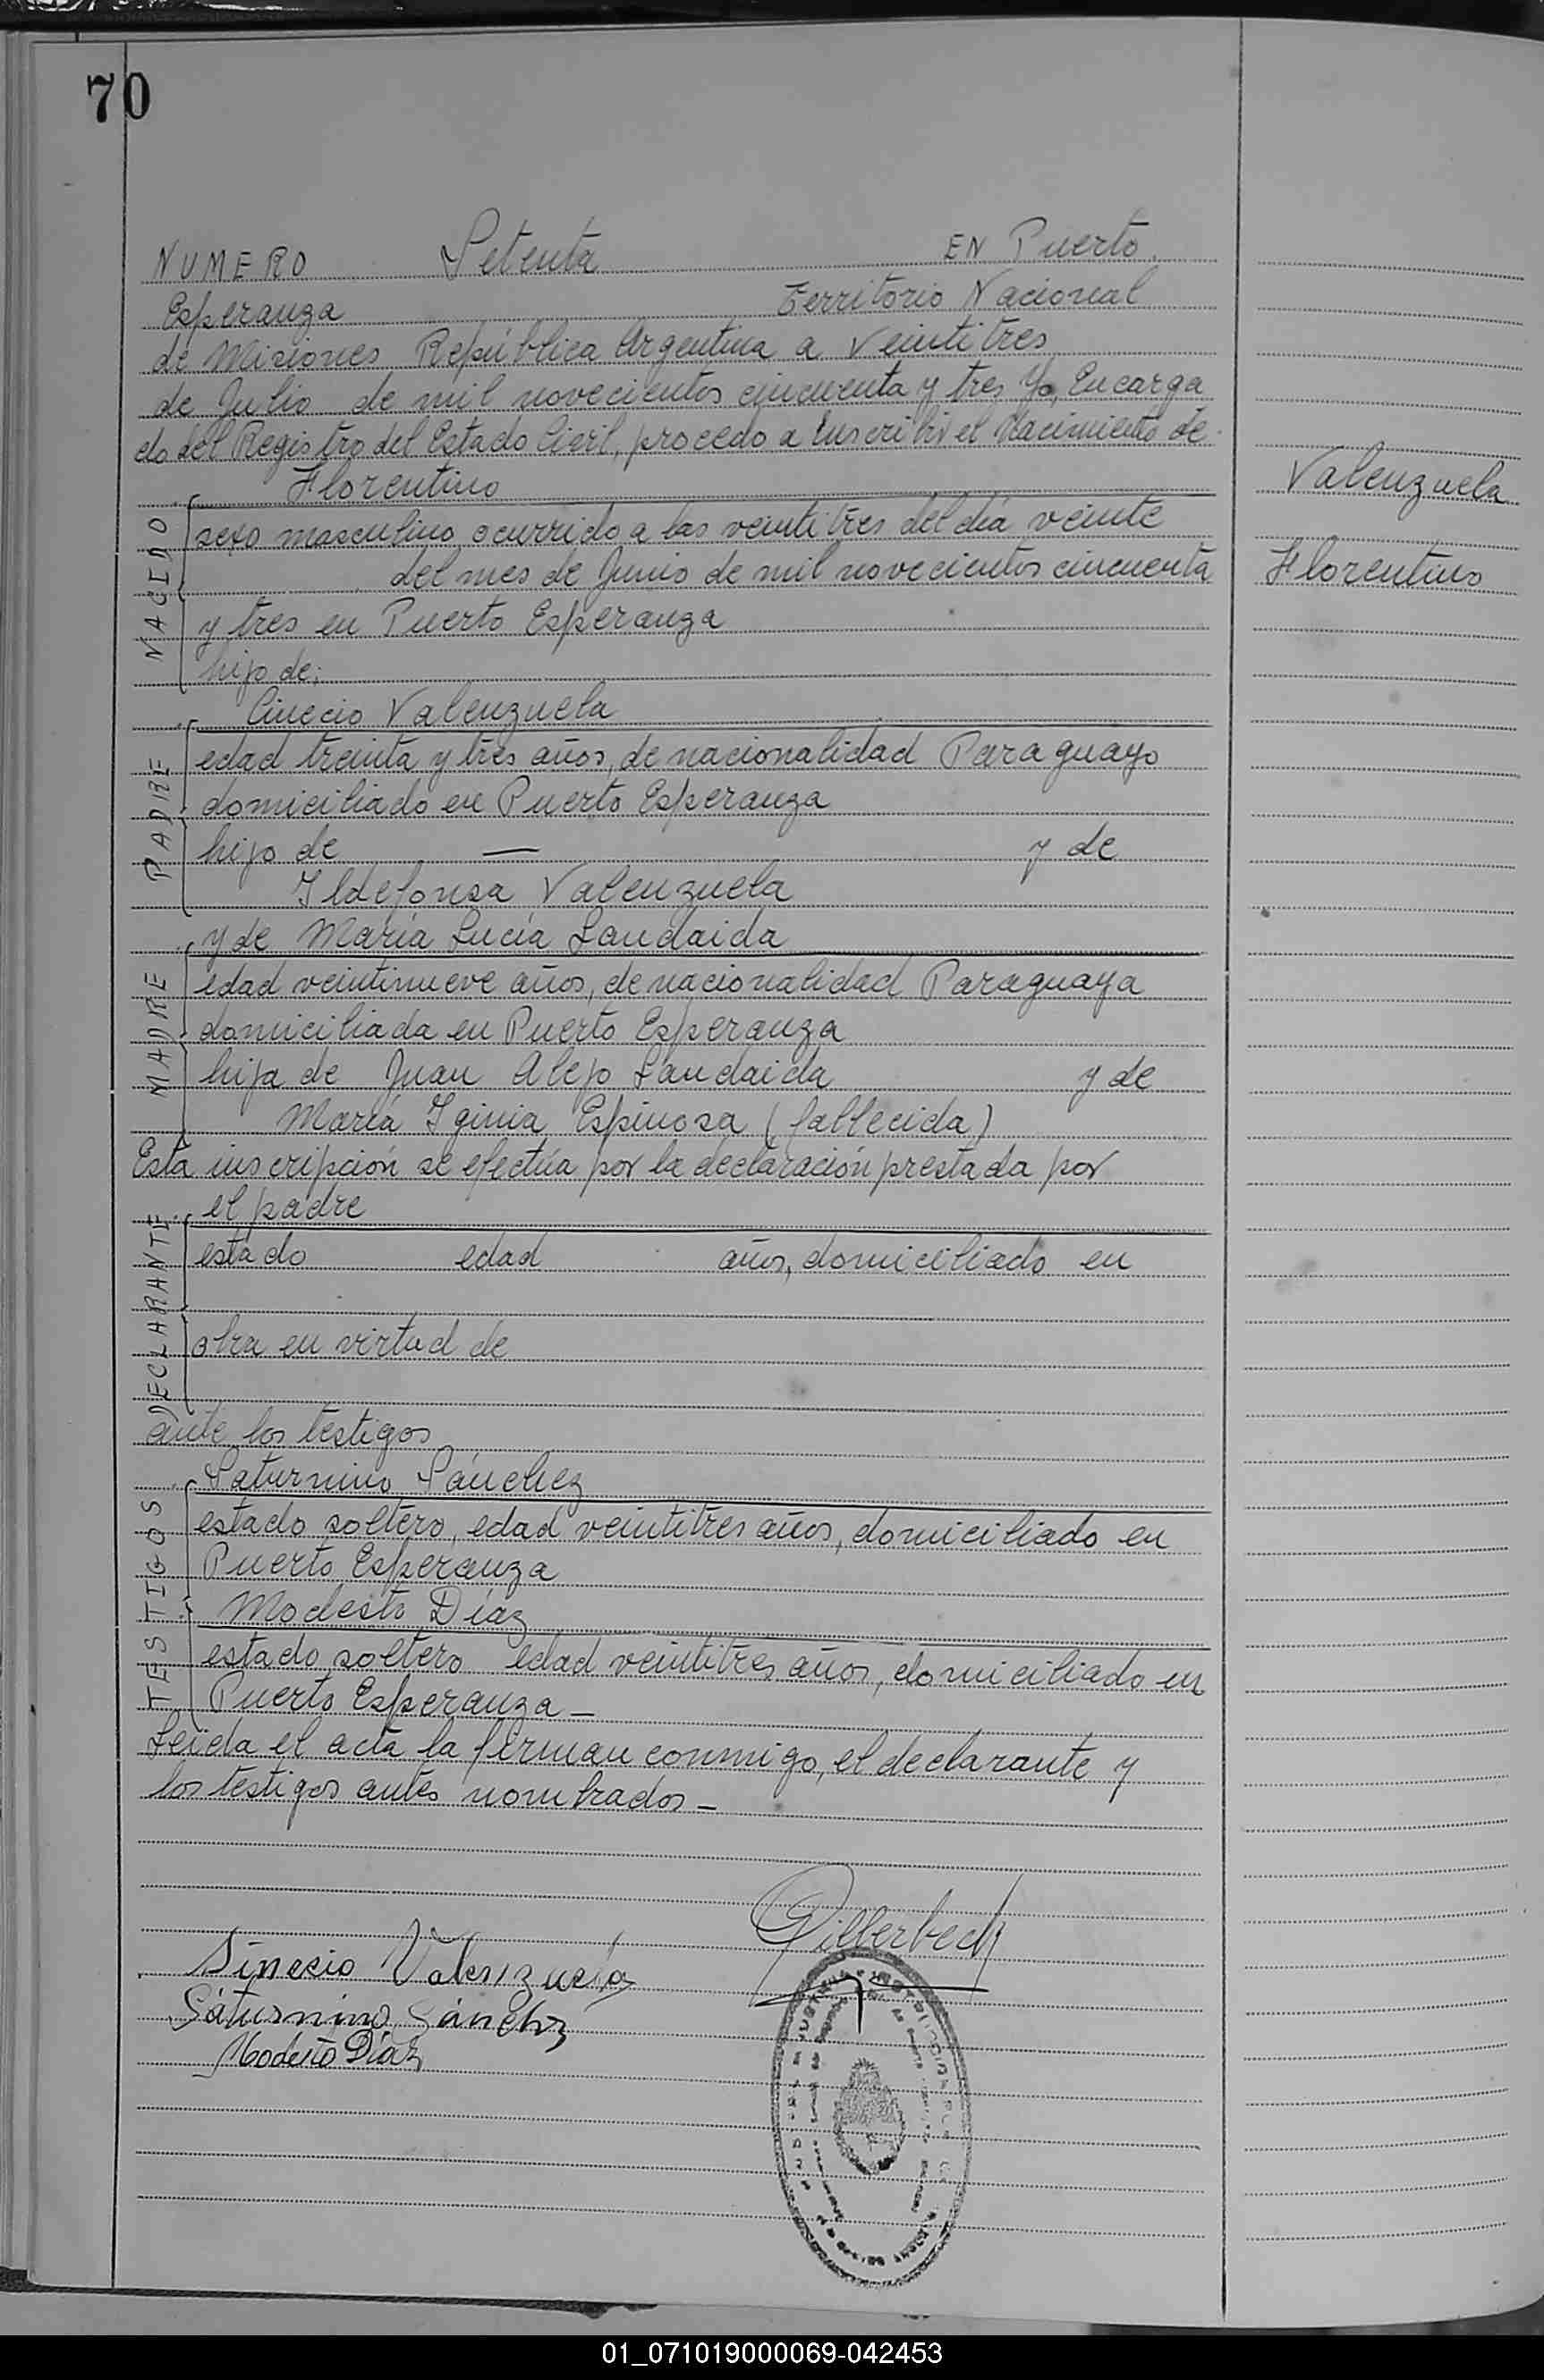 70
NUMERO Setenta EN Puerto
Esperanza Territorio Nacional
de Misiones República Argentina a Veintitres
de Julio de mil novecientos cincuenta y tres Yo, Encarga
do del Registro del Estado Civil, procedo a Inscribir el Nacimiento de
Florentino
Valenzuela
NACIDO
sexo masculino ocurrido a las veintitres del día veinte
del mes de Junio de mil novecientos cincuenta
Florentino
y tres en Puerto Esperanza
hijo de:
Cinecio Valenzuela
PADRE
edad treinta y tres años, de nacionalidad Paraguayo
domiciliado en Puerto Esperanza
hijo de — y de
Ildefonsa Valenzuela
y de María Lucía Landaida
MADRE
edad veintinueve años, de nacionalidad Paraguaya
domiciliada en Puerto Esperanza
hija de Juan Alejo Landaida y de
María Iginia Espinosa (fallecida)
Esta inscripción se efectúa por la declaración prestada por
el padre
DECLARANTE
estado edad años, domiciliado en
obra en virtud de
ante los testigos
Saturnino Sánchez
TESTIGOS
estado soltero, edad veintitres años, domiciliado en
Puerto Esperanza
Modesto Díaz
estado soltero edad veintitres años, domiciliado en
Puerto Esperanza —
Leida el acta la firman conmigo, el declarante y
los testigos antes nombrados —
Sinecio Valenzuela
Saturnino Sánchez
Modesto Díaz
01_071019000069-042453